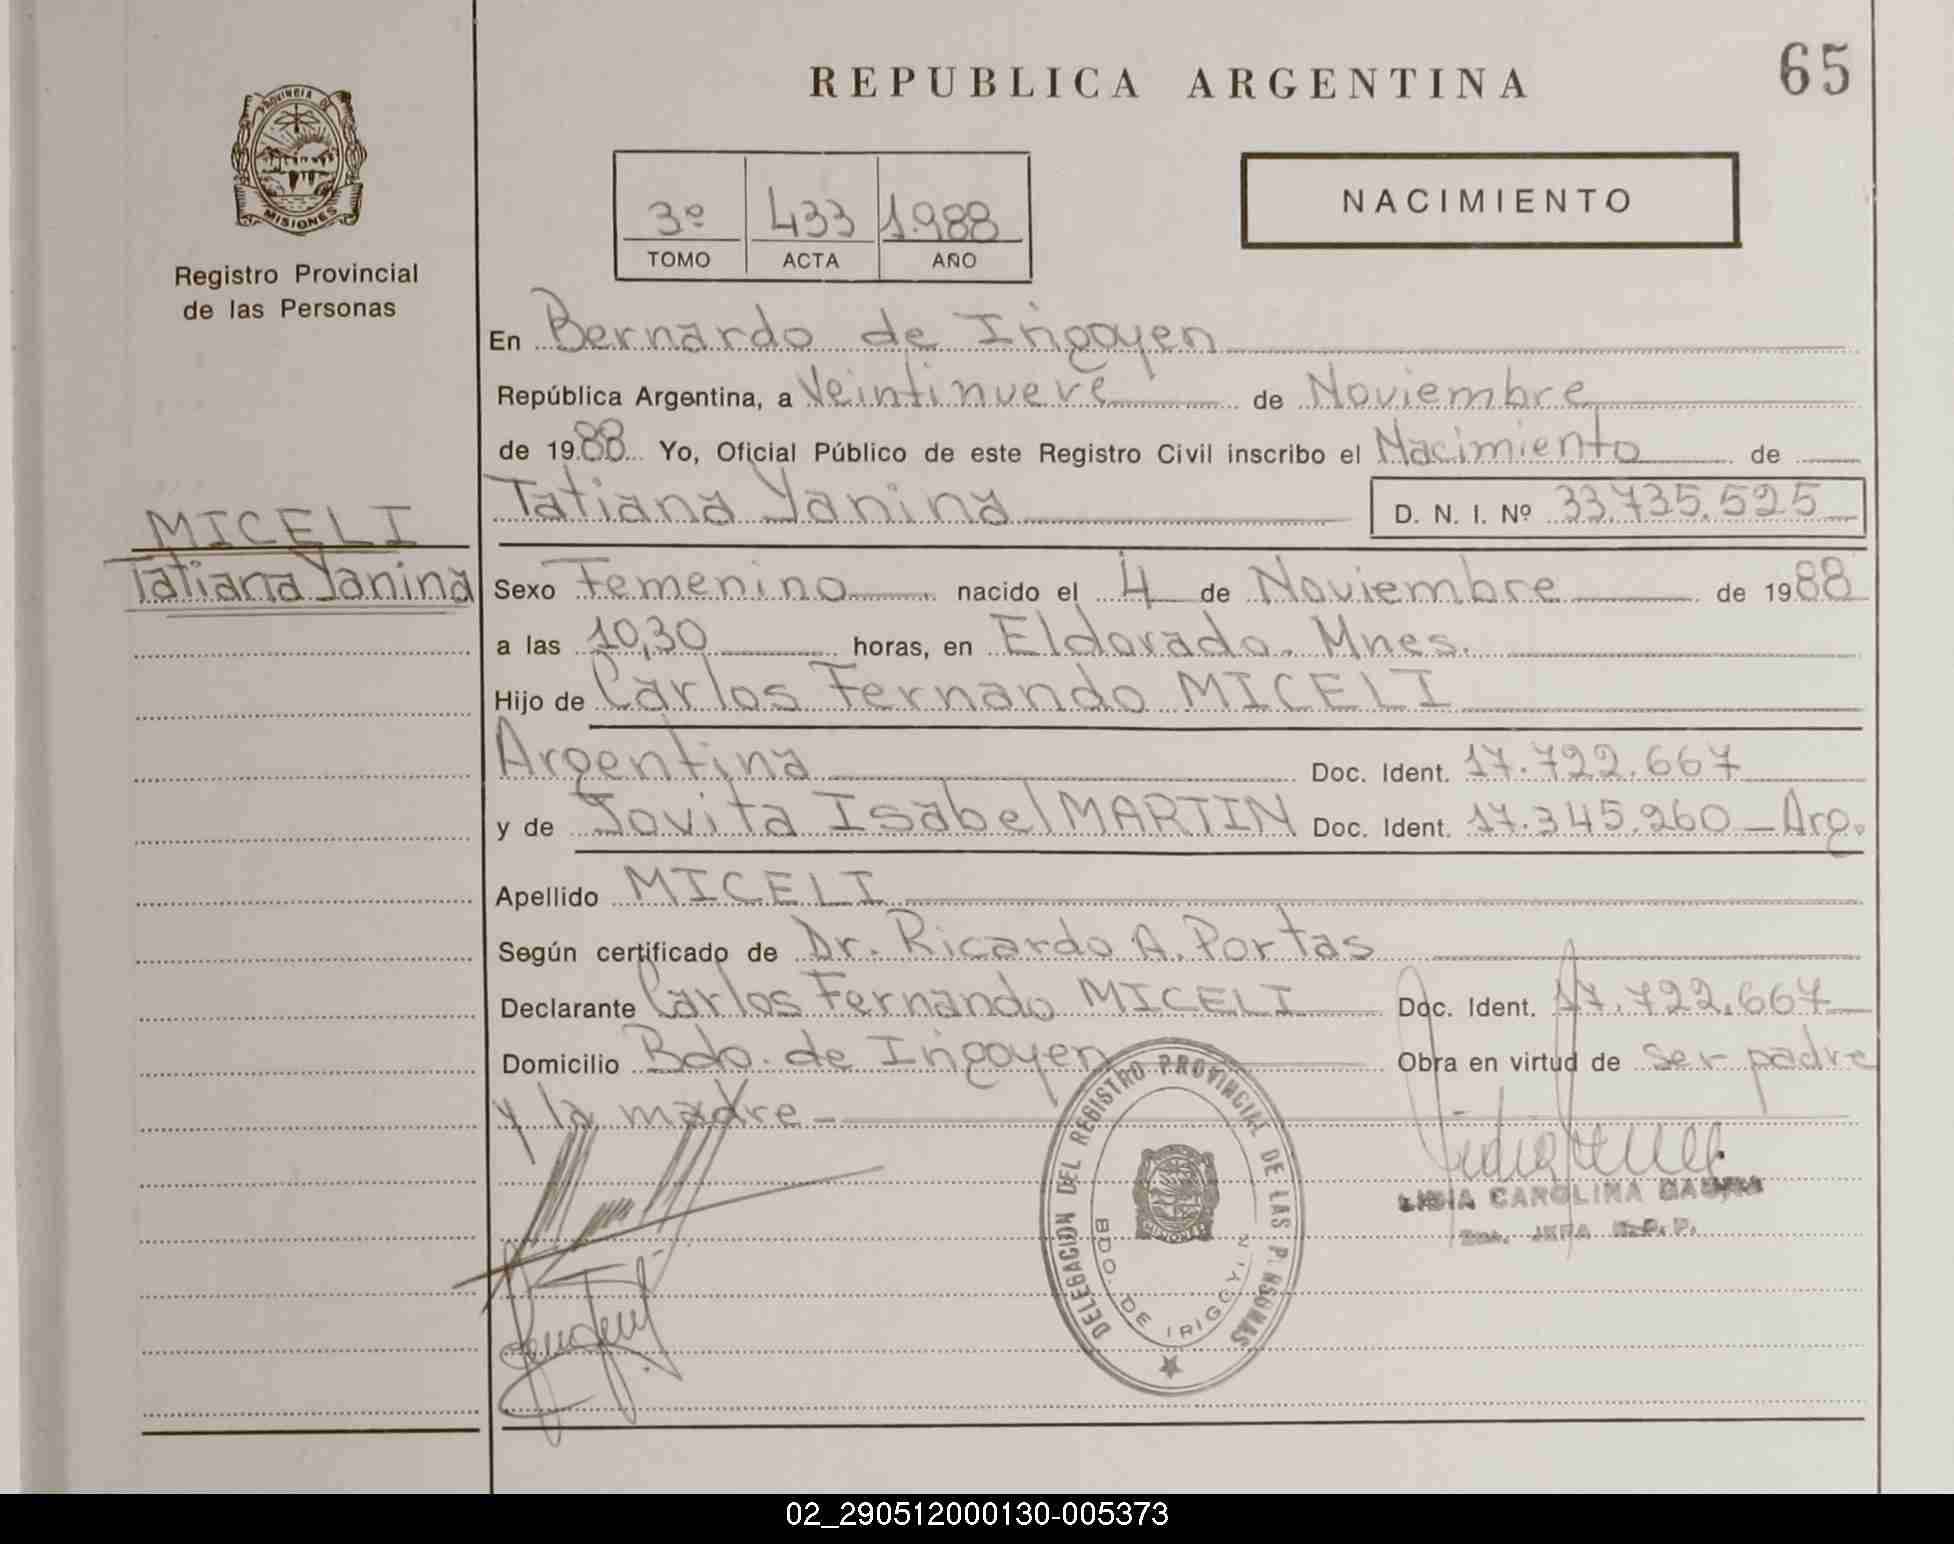 REPUBLICA ARGENTINA
65
PROVINCIA DE
MISIONES
Registro Provincial
de las Personas
3º 433 1.988
TOMO ACTA AÑO
NACIMIENTO
En Bernardo de Irigoyen
República Argentina, a Veintinueve de Noviembre
de 1988 Yo, Oficial Público de este Registro Civil inscribo el Nacimiento de
Tatiana Yanina
D. N. I. Nº 33.735.525
MICELI
Tatiana Yanina
Sexo Femenino nacido el 4 de Noviembre de 1988
a las 10,30 horas, en Eldorado. Mnes.
Hijo de Carlos Fernando MICELI
Argentina Doc. Ident. 17.722.667
y de Jovita Isabel MARTIN Doc. Ident. 17.345.260 - Arg.
Apellido MICELI
Según certificado de Dr. Ricardo A. Portas
Declarante Carlos Fernando MICELI Doc. Ident. 17.722.667
Domicilio Bdo. de Irigoyen Obra en virtud de ser padre
y la madre -
DELEGACION DEL REGISTRO PROVINCIAL DE LAS P.RSONAS
BDO. DE IRIGOY.N
CAROLINA
JEFA R.P.P.
02_290512000130-005373